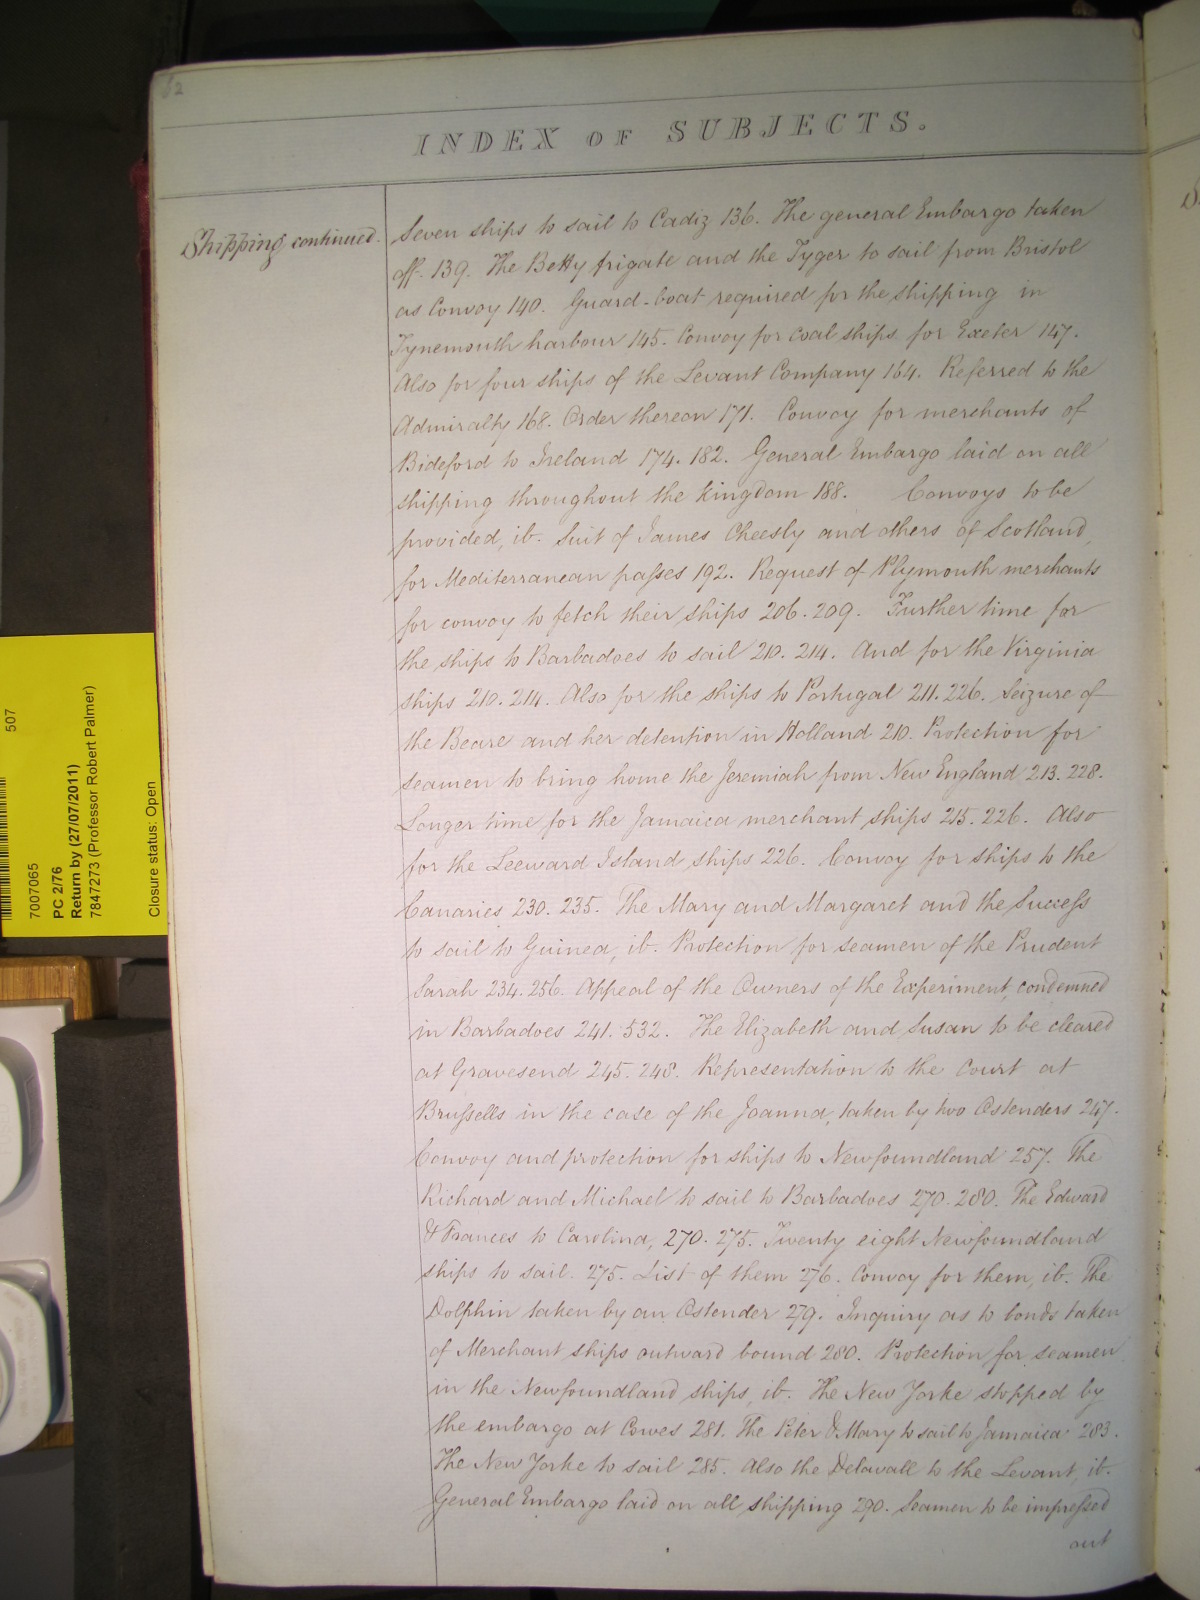 62
INDEX OF SUBJECTS.
Shipping continued.
Seven ships to sail to Cadiz 136. The general Embargo taken
off. 139. The Betty frigate and the Tyger to sail from Bristol
as Convoy 140. Guard-boat required for the shipping in
Tynemouth harbour 145. Convoy for coal ships for Exeter 147.
Also for four ships of the Levant Company 164. Referred to the
Admiralty 168. Order thereon 171. Convoy for merchants of
Bideford to Ireland 174. 182. General Embargo laid on all
shipping throughout the kingdom 188. Convoys to be
provided, ib. Suit of James Cheesly and others of Scotland,
for Mediterranean passes 192. Request of Plymouth merchants
for convoy to fetch their ships 206. 209. Further time for
the ships to Barbadoes to sail 210. 214. And for the Virginia
ships 210. 214. Also for the ships to Portugal 211. 226. Seizure of
the Beare and her detention in Holland 210. Protection for
seamen to bring home the Jeremiah from New England 213. 228.
Longer time for the Jamaica merchant ships 215. 226. Also
for the Leeward Island ships 226. Convoy for ships to the
Canaries 230. 235. The Mary and Margaret and the Success
to sail to Guinea, ib. Protection for seamen of the Prudent
Sarah 234. 256. Appeal of the Owners of the Experiment, condemned
in Barbadoes 241. 532. The Elizabeth and Susan to be cleared
at Gravesend 245. 248. Representation to the Court at
Brussells in the case of the Joanna, taken by two Ostenders 247.
Convoy and protection for ships to Newfoundland 257. The
Richard and Michael to sail to Barbadoes 270. 280. The Edward
& Frances to Carolina, 270. 275. Twenty eight Newfoundland
ships to sail. 275. List of them 276. Convoy for them, ib. The
Dolphin taken by an Ostender 279. Inquiry as to bonds taken
of Merchant ships outward bound 280. Protection for seamen
in the Newfoundland ships, ib. The New Yorke stopped by
the embargo at Cowes 281. The Peter & Mary to sail to Jamaica 283.
The New Yorke to sail 285. Also the Delavall to the Levant, ib.
General Embargo laid on all shipping 290. Seamen to be impressed
out
507
7007065
PC 2/76
Return by (27/07/2011)
7847273 (Professor Robert Palmer)
Closure status: Open